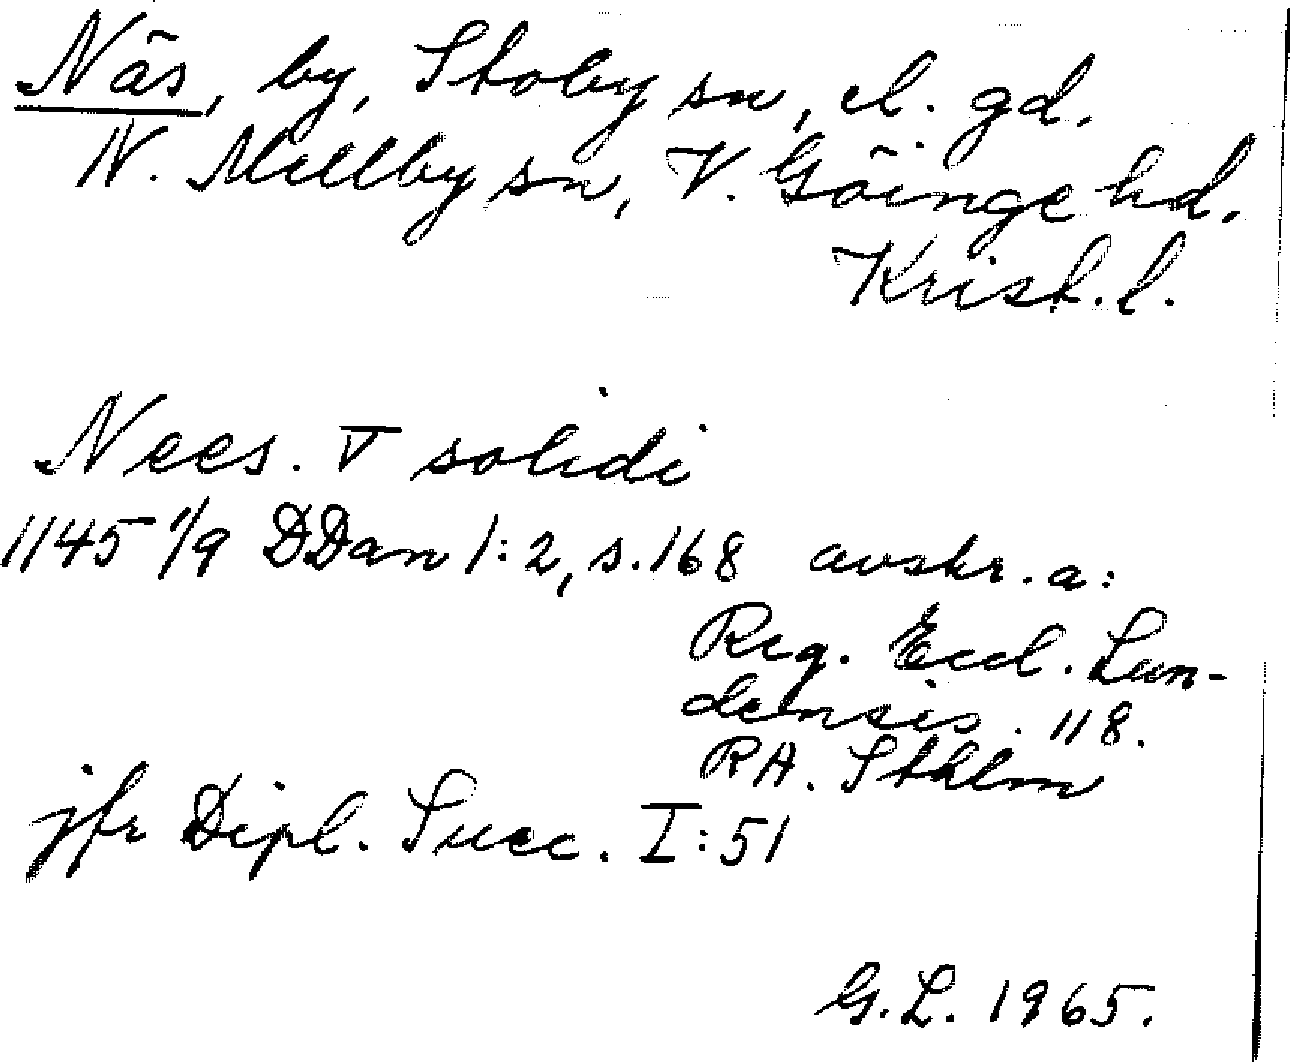 Näs, by, Stoby sn, el. gd.
N. Mellby sn, V. Göinge hd.
Krist. l.
Nees. V solidi
1145 1/9 DDan 1:2, s. 168 avskr. a:
Reg. Eccl. Lun-
densis. 118.
RA. Sthlm
jfr Dipl. Suec. I:51
G. L. 1965.